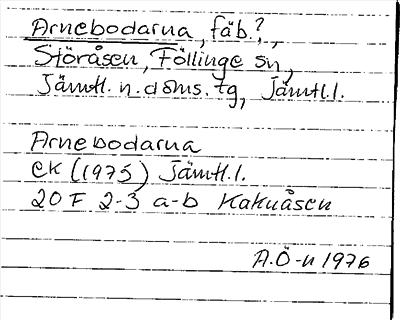 Arnebodarna, fäb.?,
Störåsen, Föllinge sn,
Jämtl. n. doms. tg, Jämtl.l.
Arnebodarna
EK (1975) Jämtl.l.
20 F 2-3 a-b Kakuåsen
A.Ö-n 1976